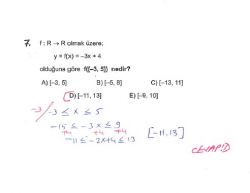 7. f : R → R olmak üzere;
y = f(x) = –3x + 4
olduğuna göre f([–3, 5]) nedir?
A) [–3, 5] B) [–5, 8] C) [–13, 11]
D) [–11, 13] E) [–9, 10]
-3/ -3 ≤ x ≤ 5
-15 ≤ -3x ≤ 9
+4 +4 +4
-11 ≤ -3x+4 ≤ 13 [-11,13]
CEVAP D